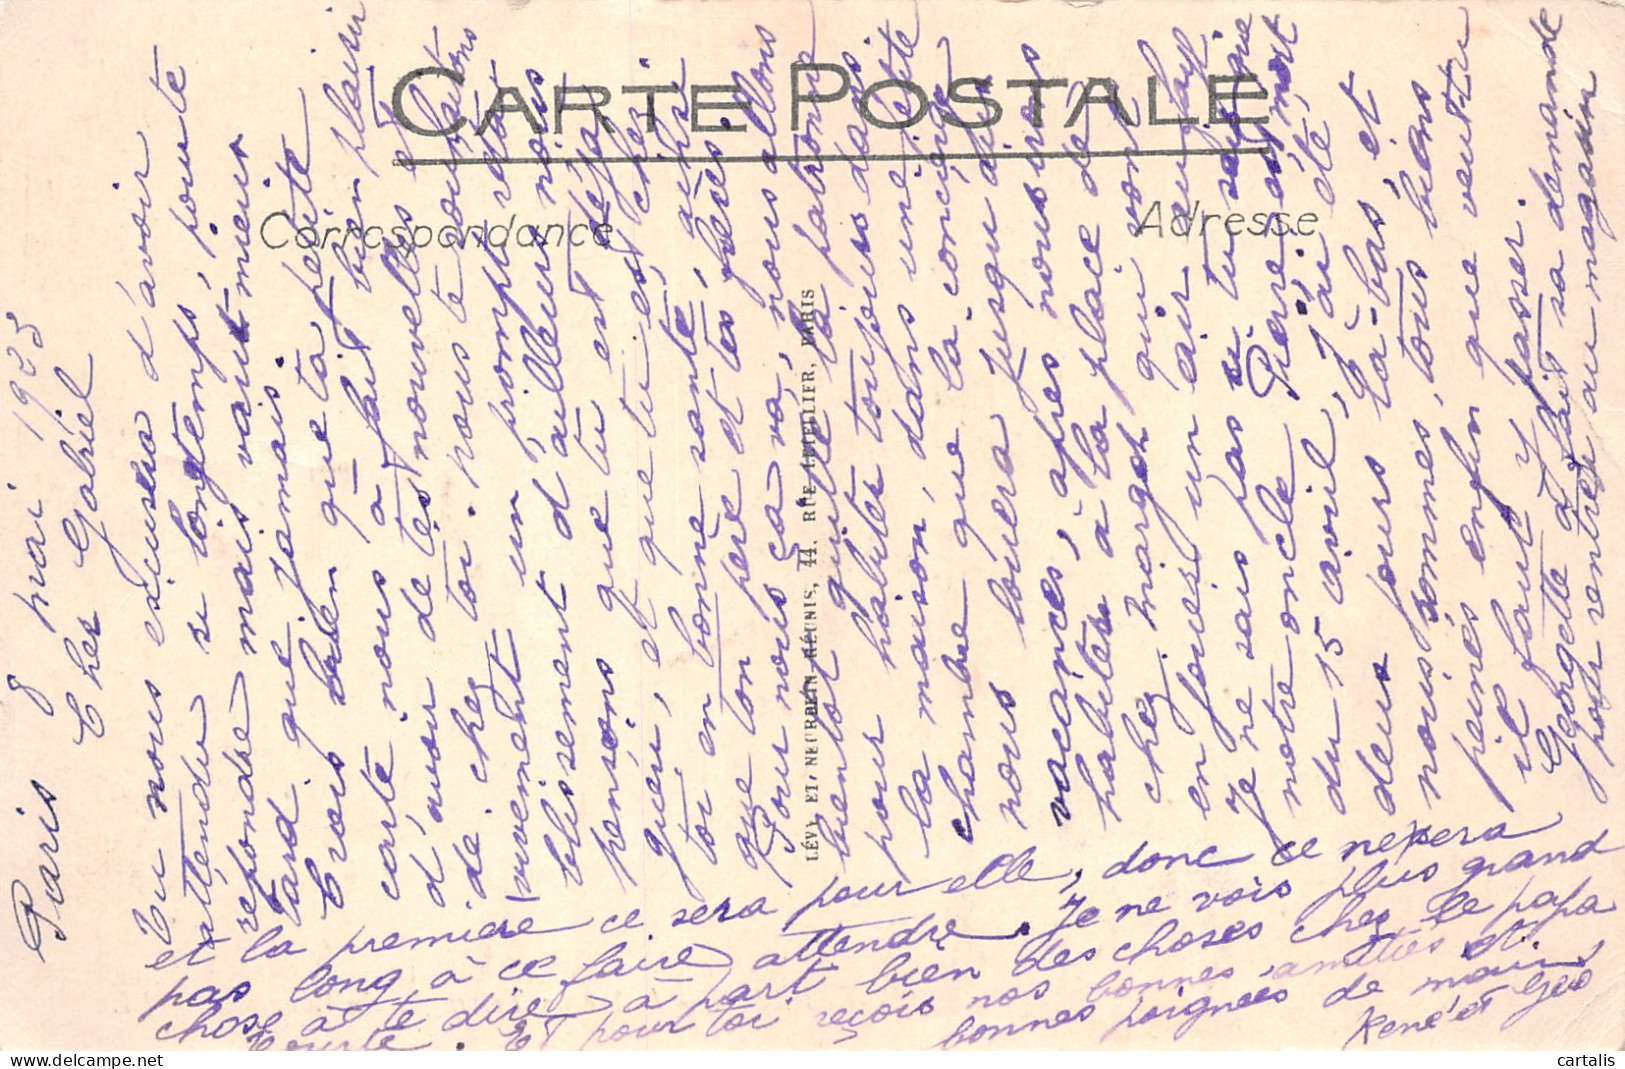 CARTE POSTALE
Correspondance
Adresse
LÉVY ET NEURDEIN RÉUNIS, 44, RUE LETELLIER, PARIS
Paris 8 mai 1923
Cher Gabriel
Tu nous excusera d'avoir
attendu si longtemps, pour te
répondre mais vaut mieux
tard que jamais.
Crois bien que ta petite
carte nous à fait bien plaisir
d'avoir de tes nouvelles et
de chez toi. nous te souhaitons
vivement un prompt
blissement d'ailleurs nous
pensons que tu est déjà
et que tu est chez
toi en bonne santé, ainsi
que ton père et tes frères.
Pour nous ça va, nous allons
bientot quitté la patronne
pour habiter toujours dans
la maison, dans une petite
chambre que la concierge
nous louera jusqu'au
vacances, après nous irons
habiter à la place de
chez margot qui vont
en jouir un air
Je ne sais pas si tu sait que
notre oncle Pierre est mort
du 15 avril, J'ai été,
deux jours là-bas, et
nous sommes tous biens
peinés enfin que veux tu
il faut y passer.
Georgette à fait sa demande
pour rentrer au magasin
et la première ce sera pour elle, donc ce ne sera
pas long à ce faire attendre. Je ne vois plus grand
chose à te dire à part bien des choses chez le papa
Et pour toi reçois nos bonnes amitiés et
bonnes poignées de main,
René et Geo
cartalis